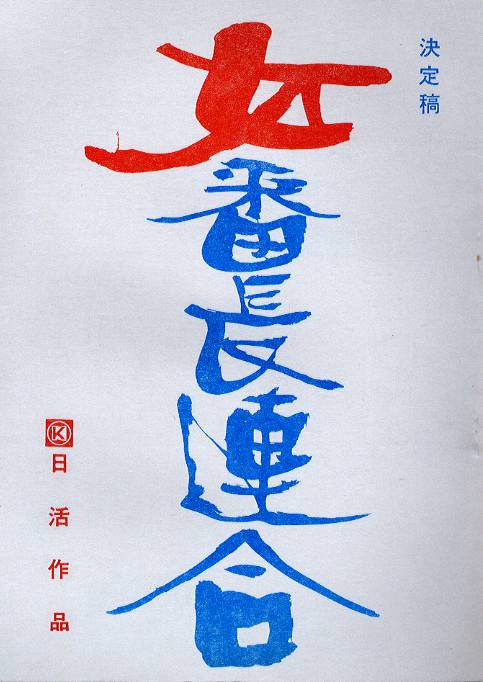 決定稿
女番長連合
K
日活作品